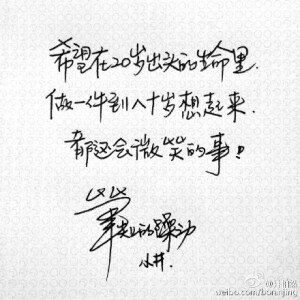 希望在20岁出头的生命里.
做一件到八十岁想起来.
都还会微笑的事!
毕业的躁动
小井.
weibo.com/boninjing